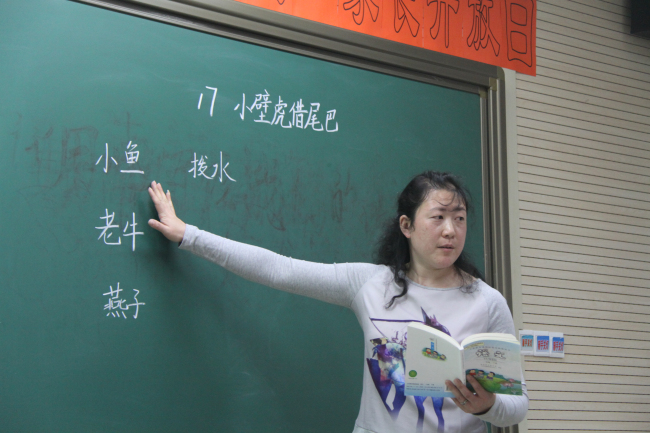 家长开放日
17 小壁虎借尾巴
小鱼 拨水
老牛
燕子
语文